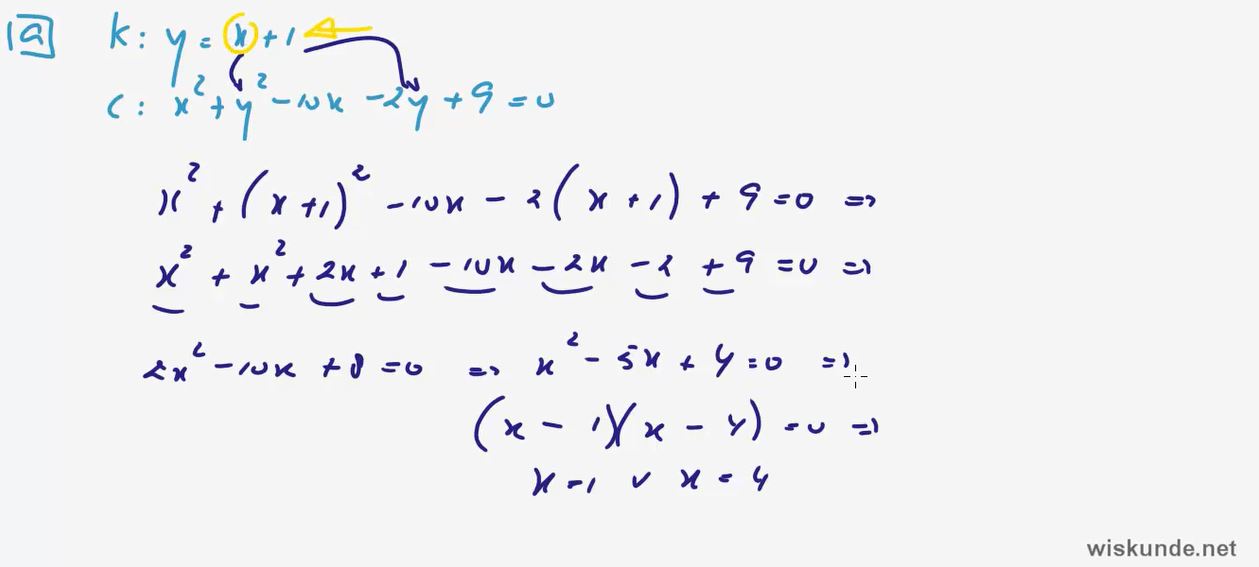 1a k: y = x + 1
C: x² + y² - 10x - 2y + 9 = 0
x² + (x + 1)² - 10x - 2(x + 1) + 9 = 0 =>
x² + x² + 2x + 1 - 10x - 2x - 2 + 9 = 0 =>
2x² - 10x + 8 = 0 => x² - 5x + 4 = 0 =>
(x - 1)(x - 4) = 0 =>
x = 1 v x = 4
wiskunde.net